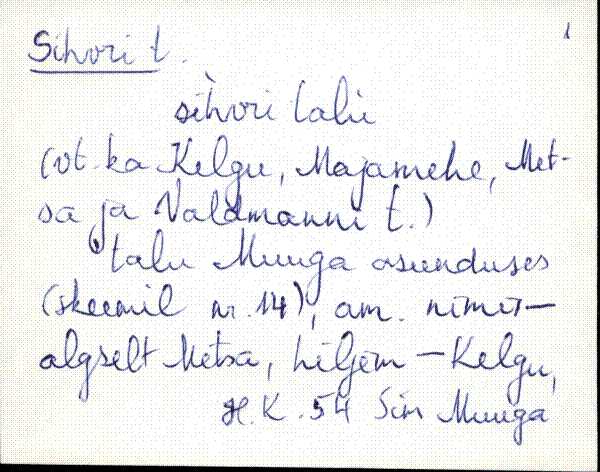 1
Sihvri t.
sìhvri talu
(vt. ka Kelgu, Majamehe, Met-
sa ja Valdmanni t.)
talu Muuga asunduses
(skeemil nr. 14), am. nimi –
algselt Metsa, hiljem – Kelgu,
H.K. 54 Sim Muuga